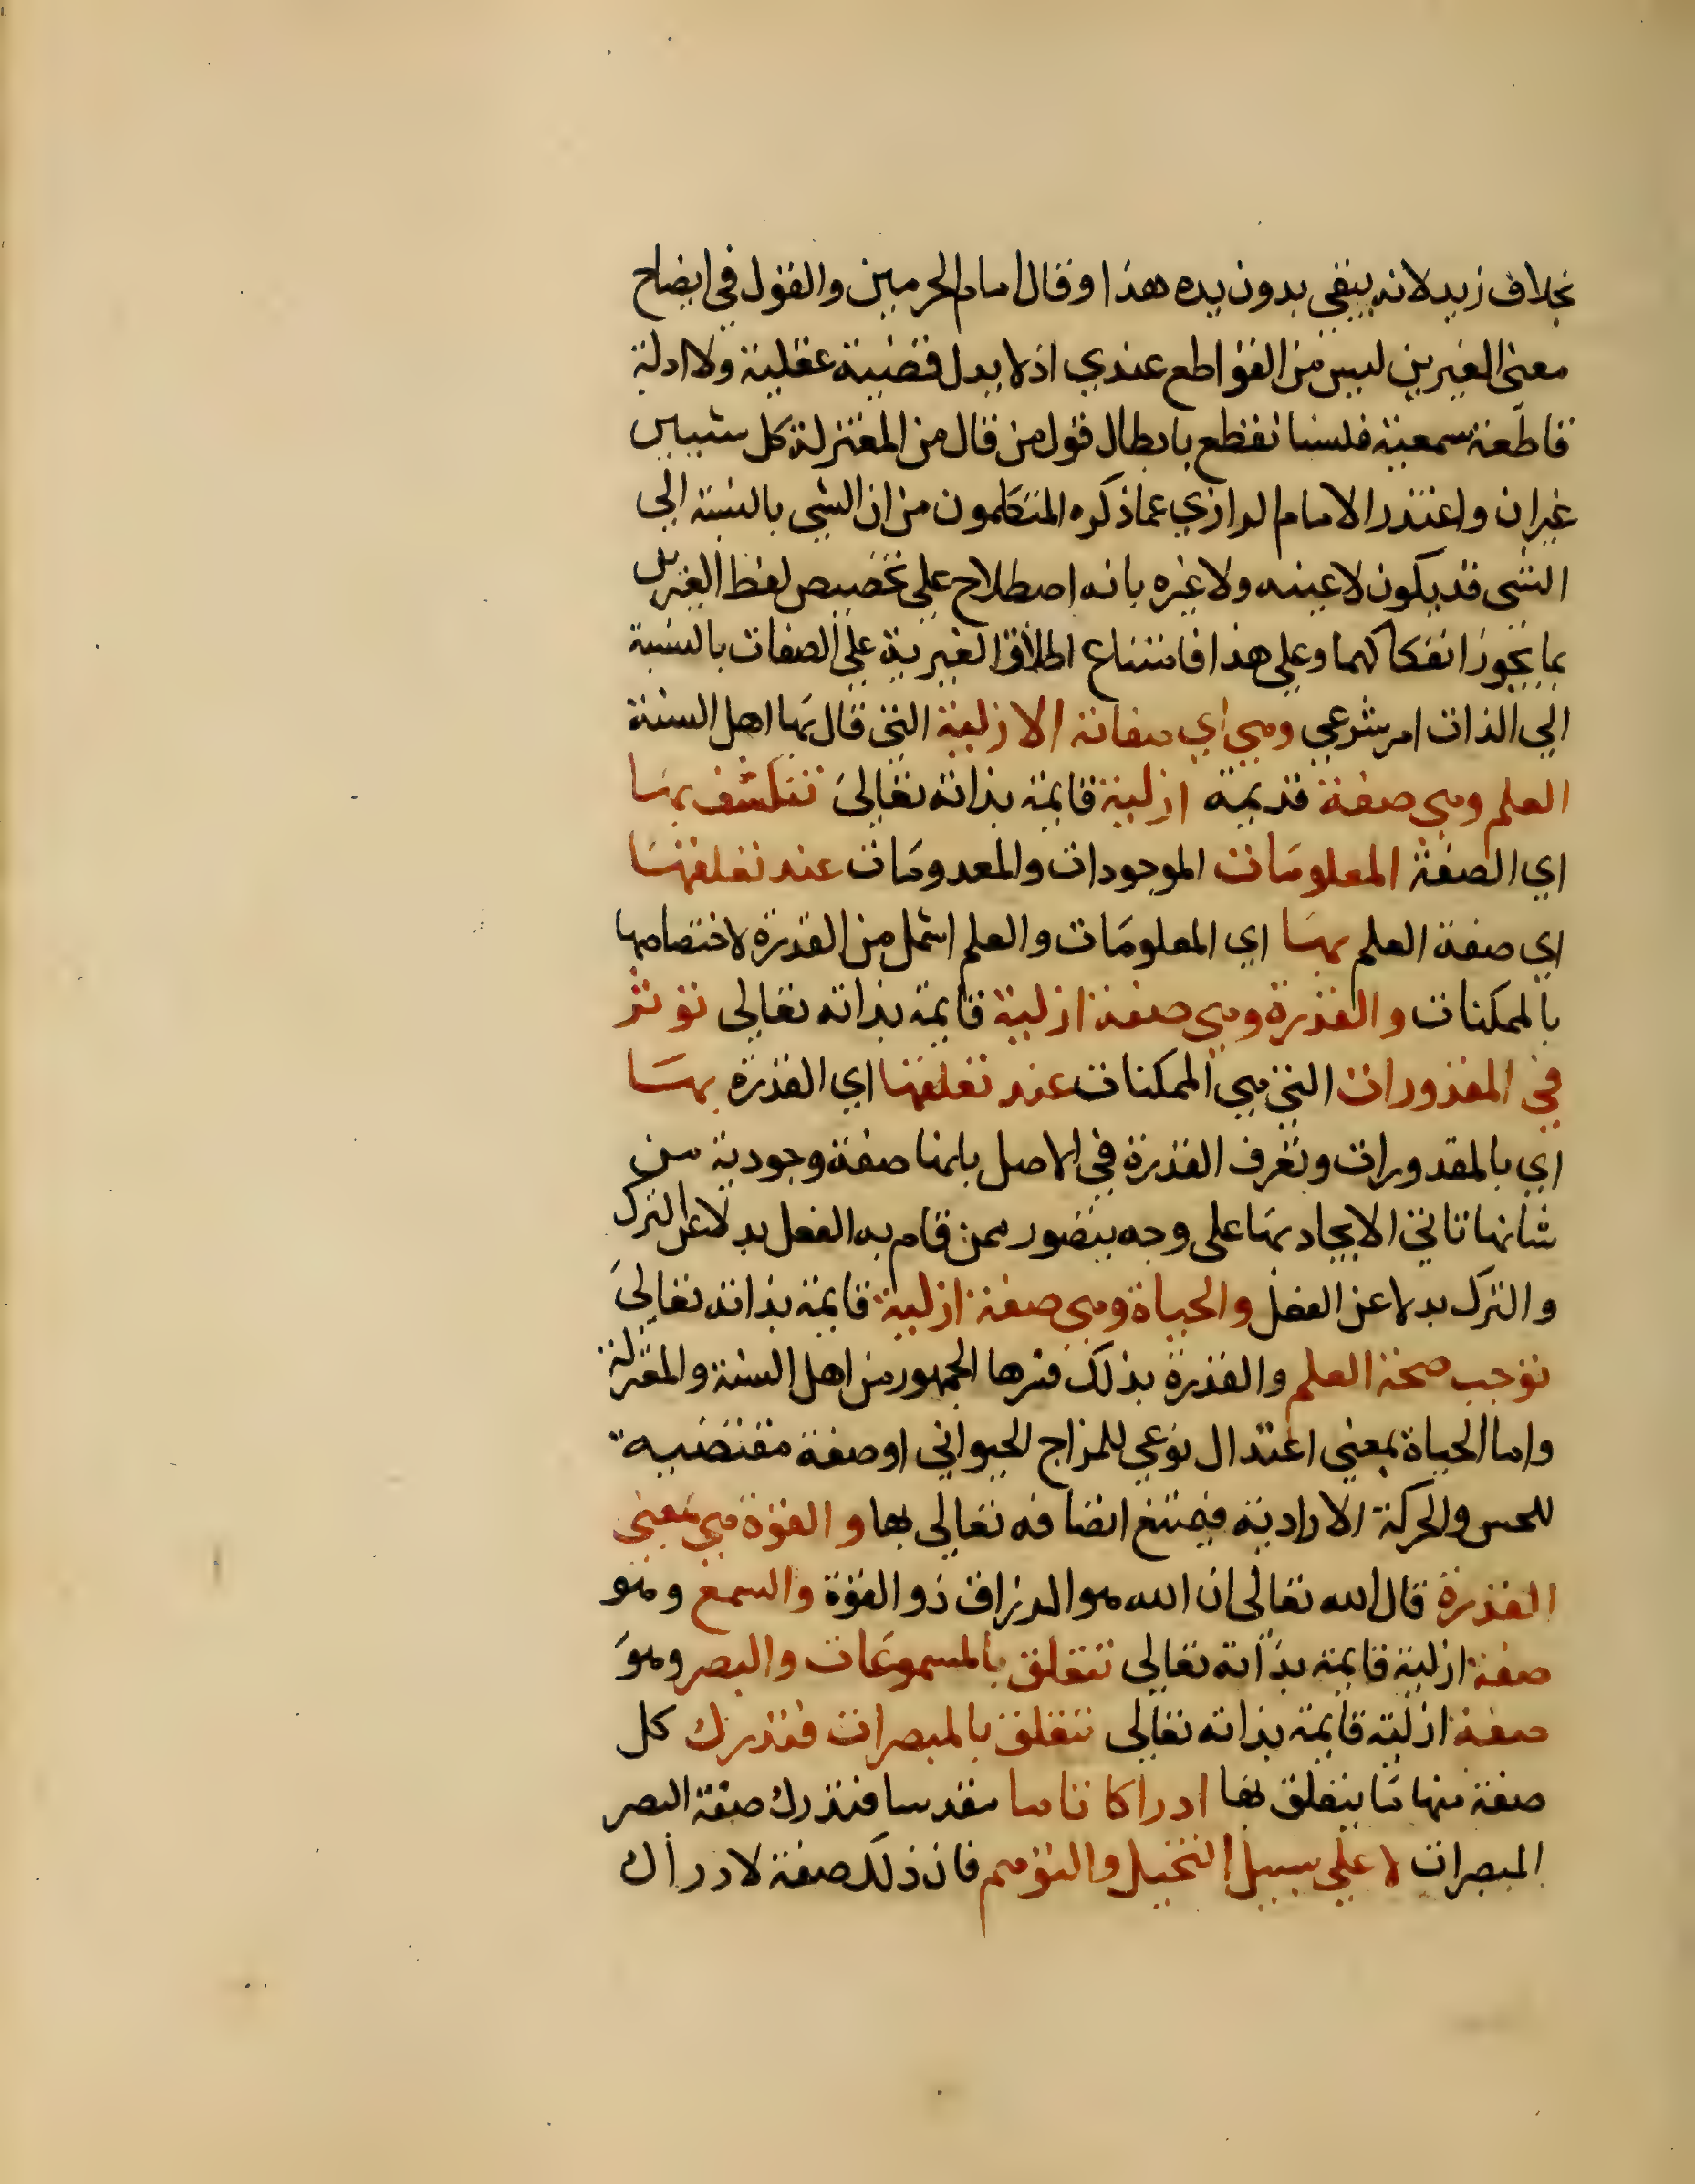 بخلاف زيد لانه يبقي بدون يده هذا وقال امام الحرمين والقول في ايضاح
معنى الغيرين ليس من القواطع عندي اذ لا يدل قضية عقلية ولا ادلة
قاطعة سمعية فلسنا نقطع بابطال قول من قال من المعتزلة كل شيئين
غيران واعتذر الامام الرازي عما ذكره المتكلمون من ان الشي بالنسبة الي
الشي قد يكون لا عينه ولا غيره بانه اصطلاح علي تخصيص لفظ الغيرين
بما يجوز انفكاكهما وعلي هذا فامتناع اطلاق الغيرية علي الصفات بالنسبة
الي الذات امر شرعي وهي اي صفاته الازلية التي قال بها اهل السنة
العلم وهي صفة قديمة ازلية قايمة بذاته تعالى تنكشف بها
اي الصفة المعلومات الموجودات والمعدومات عند تعلقها
اي صفة العلم بها اي المعلومات والعلم اشمل من القدرة لاختصاصها
بالممكنات والقدرة وهي صفة ازلية قايمة بذاته تعالي توثر
في المقدورات التي هي الممكنات عند تعلقها اي القدرة بها
اي بالمقدورات وتعرف القدرة في الاصل بانها صفة وجودية من
شانها تاتي الايجاد بها على وجه يتصور ممن قام به الفعل بدلا عن الترك
والترك بدلا عن الفعل والحياة وهي صفة ازلية قايمة بذاته تعالى
توجب صحة العلم والقدرة بذلك فسرها الجمهور من اهل السنة والمعتزلة
واما الحياة بمعني اعتدال نوعي للمزاج الحيواني او صفة مقتضية
للحس والحركة الارادية فيمتنع اتصافه تعالي بها والقوة هي بمعني
القدرة قال الله تعالي ان الله هو الرزاق ذو القوة والسمع وهو
صفة ازلية قايمة بذاته تعالي تتعلق بالمسموعات والبصر وهو
صفة ازلية قايمة بذاته تعالي تتعلق بالمبصرات فتدرك كل
صفة منها ما يتعلق بها ادراكا تاما مقدسا فتدرك صفة البصر
المبصرات لا علي سبيل التخيل والتوهم فان ذلك صفة لادراك